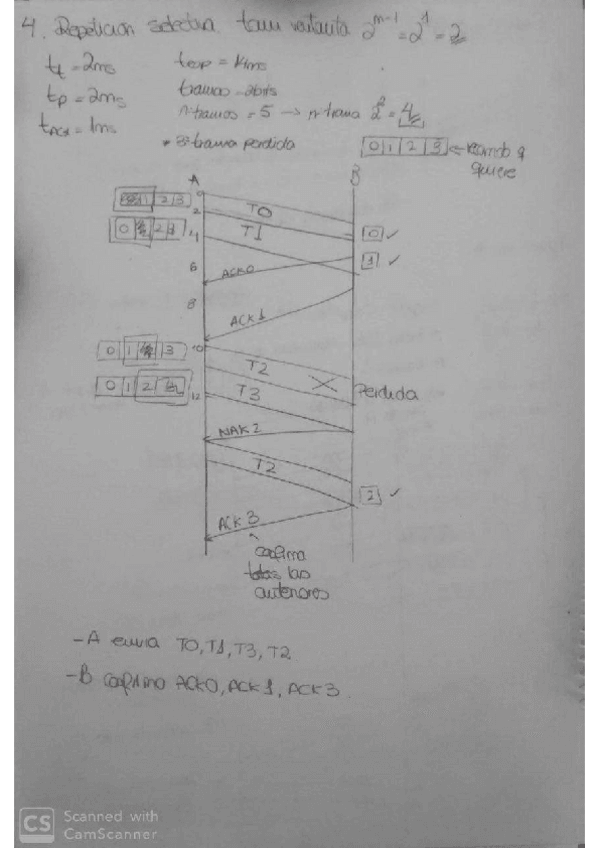 4. Repetición selectiva tam ventanita 2^m-1 = 2^1 = 2
tt = 2ms
tp = 2ms
tACK = 1ms
tramas = 2bits
n tramas = 5 → n trama 2^2 = 4
* 3ª trama perdida
0 1 2 3 ←
quiere
A
B
0
2
4
6
8
10
12
1 2 3
0 2 3
0 1 3
0 1 2
T0
T1
ACK0
ACK 1
0 ✓
1 ✓
T2
T3
Perdida
NAK 2
T2
2 ✓
ACK 3
confirma
todas las
anteriores
- A envia T0, T1, T3, T2
- B confirma ACK0, ACK 1, ACK 3
CS
Scanned with
CamScanner